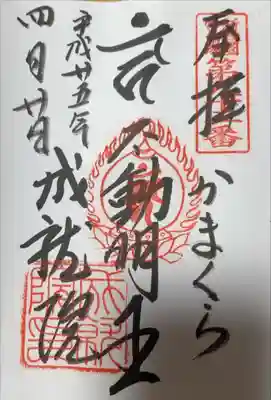 奉拝
かまくら
不動明王
成就院
平成廿五年
四月廿日